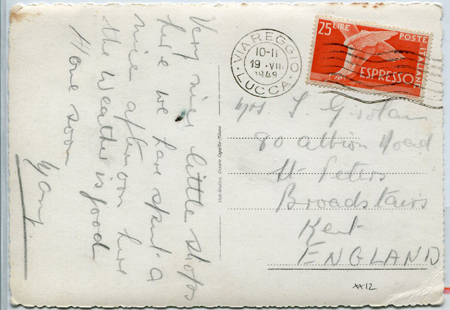 Very nice little shops
here we have spent a
nice afternoon here
the weather is good
Home soon
VIAREGGIO
10-11
19 VII
1949
LUCCA
25 LIRE
POSTE ITALIANE
ESPRESSO
Mrs S.
80 Albion Road
St Peters
Broadstairs
Kent
ENGLAND
XX12